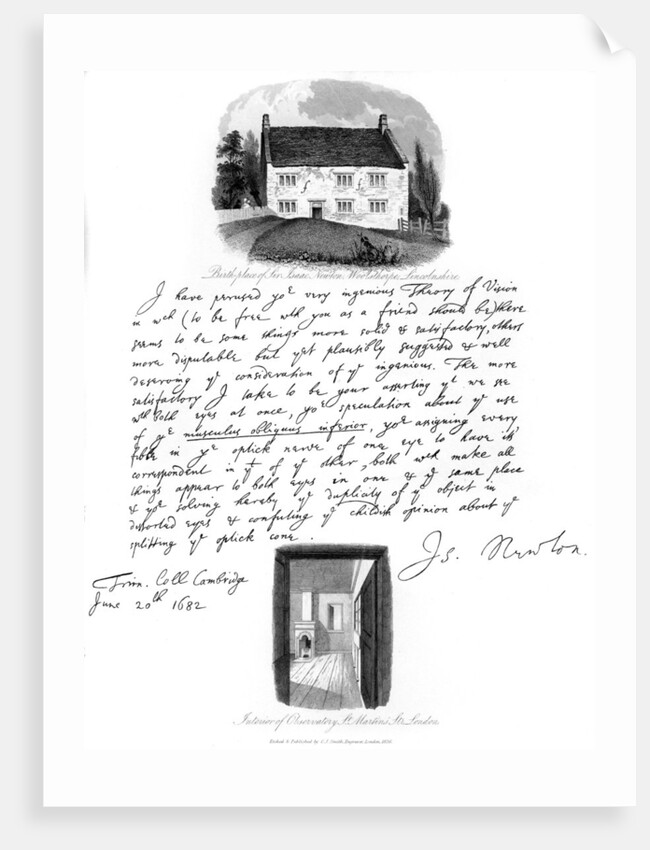 Birthplace of Sir Isaac Newton, Woolsthorpe, Lincolnshire
I have perused yor very ingenious Theory of Vision
in wch (to be free wth you as a friend should be) there
seems to be some things more solid & satisfactory, others
more disputable but yet plausibly suggested & well
deserving ye consideration of ye ingenious. The more
satisfactory I take to be your asserting yt we see
wth both eyes at once, yor speculation about ye use
of ye musculus obliquus inferior, yor assigning every
fibre in ye optick nerve of one eye to have its
correspondent in yt of ye other, both wch make all
things appear to both eyes in one & ye same place
& yor solving hereby ye duplicity of ye object in
distorted eyes & confuting ye childish opinion about ye
splitting ye optick cone.
Is. Newton.
Trin. Coll Cambridge
June 20th 1682
Interior of Observatory, St. Martin's Str. London
Etched & Published by C. J. Smith, Engraver London